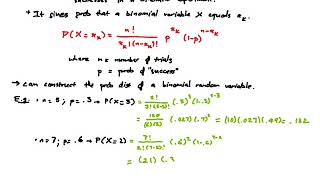 successes in a binomial experiment.
* It gives prob that a binomial variable X equals x_k.
P(X=x_k) = n! / x_k!(n-x_k)! p^x_k (1-p)^n-x_k
where n = number of trials
p = prob of "success"
→ can construct the prob dist of a binomial random variable.
E.g. • n=5, p=.3 → P(X=3) = 5! / 3!(5-3)! (.3)^3 (1-.3)^5-3
= 120 / (6)(2) (.027)(.7)^2 = (10)(.027)(.49) = .132
• n=7, p=.6 → P(X=2) = 7! / 2!(7-2)! (.6)^2 (1-.6)^7-2
= (21)(.3